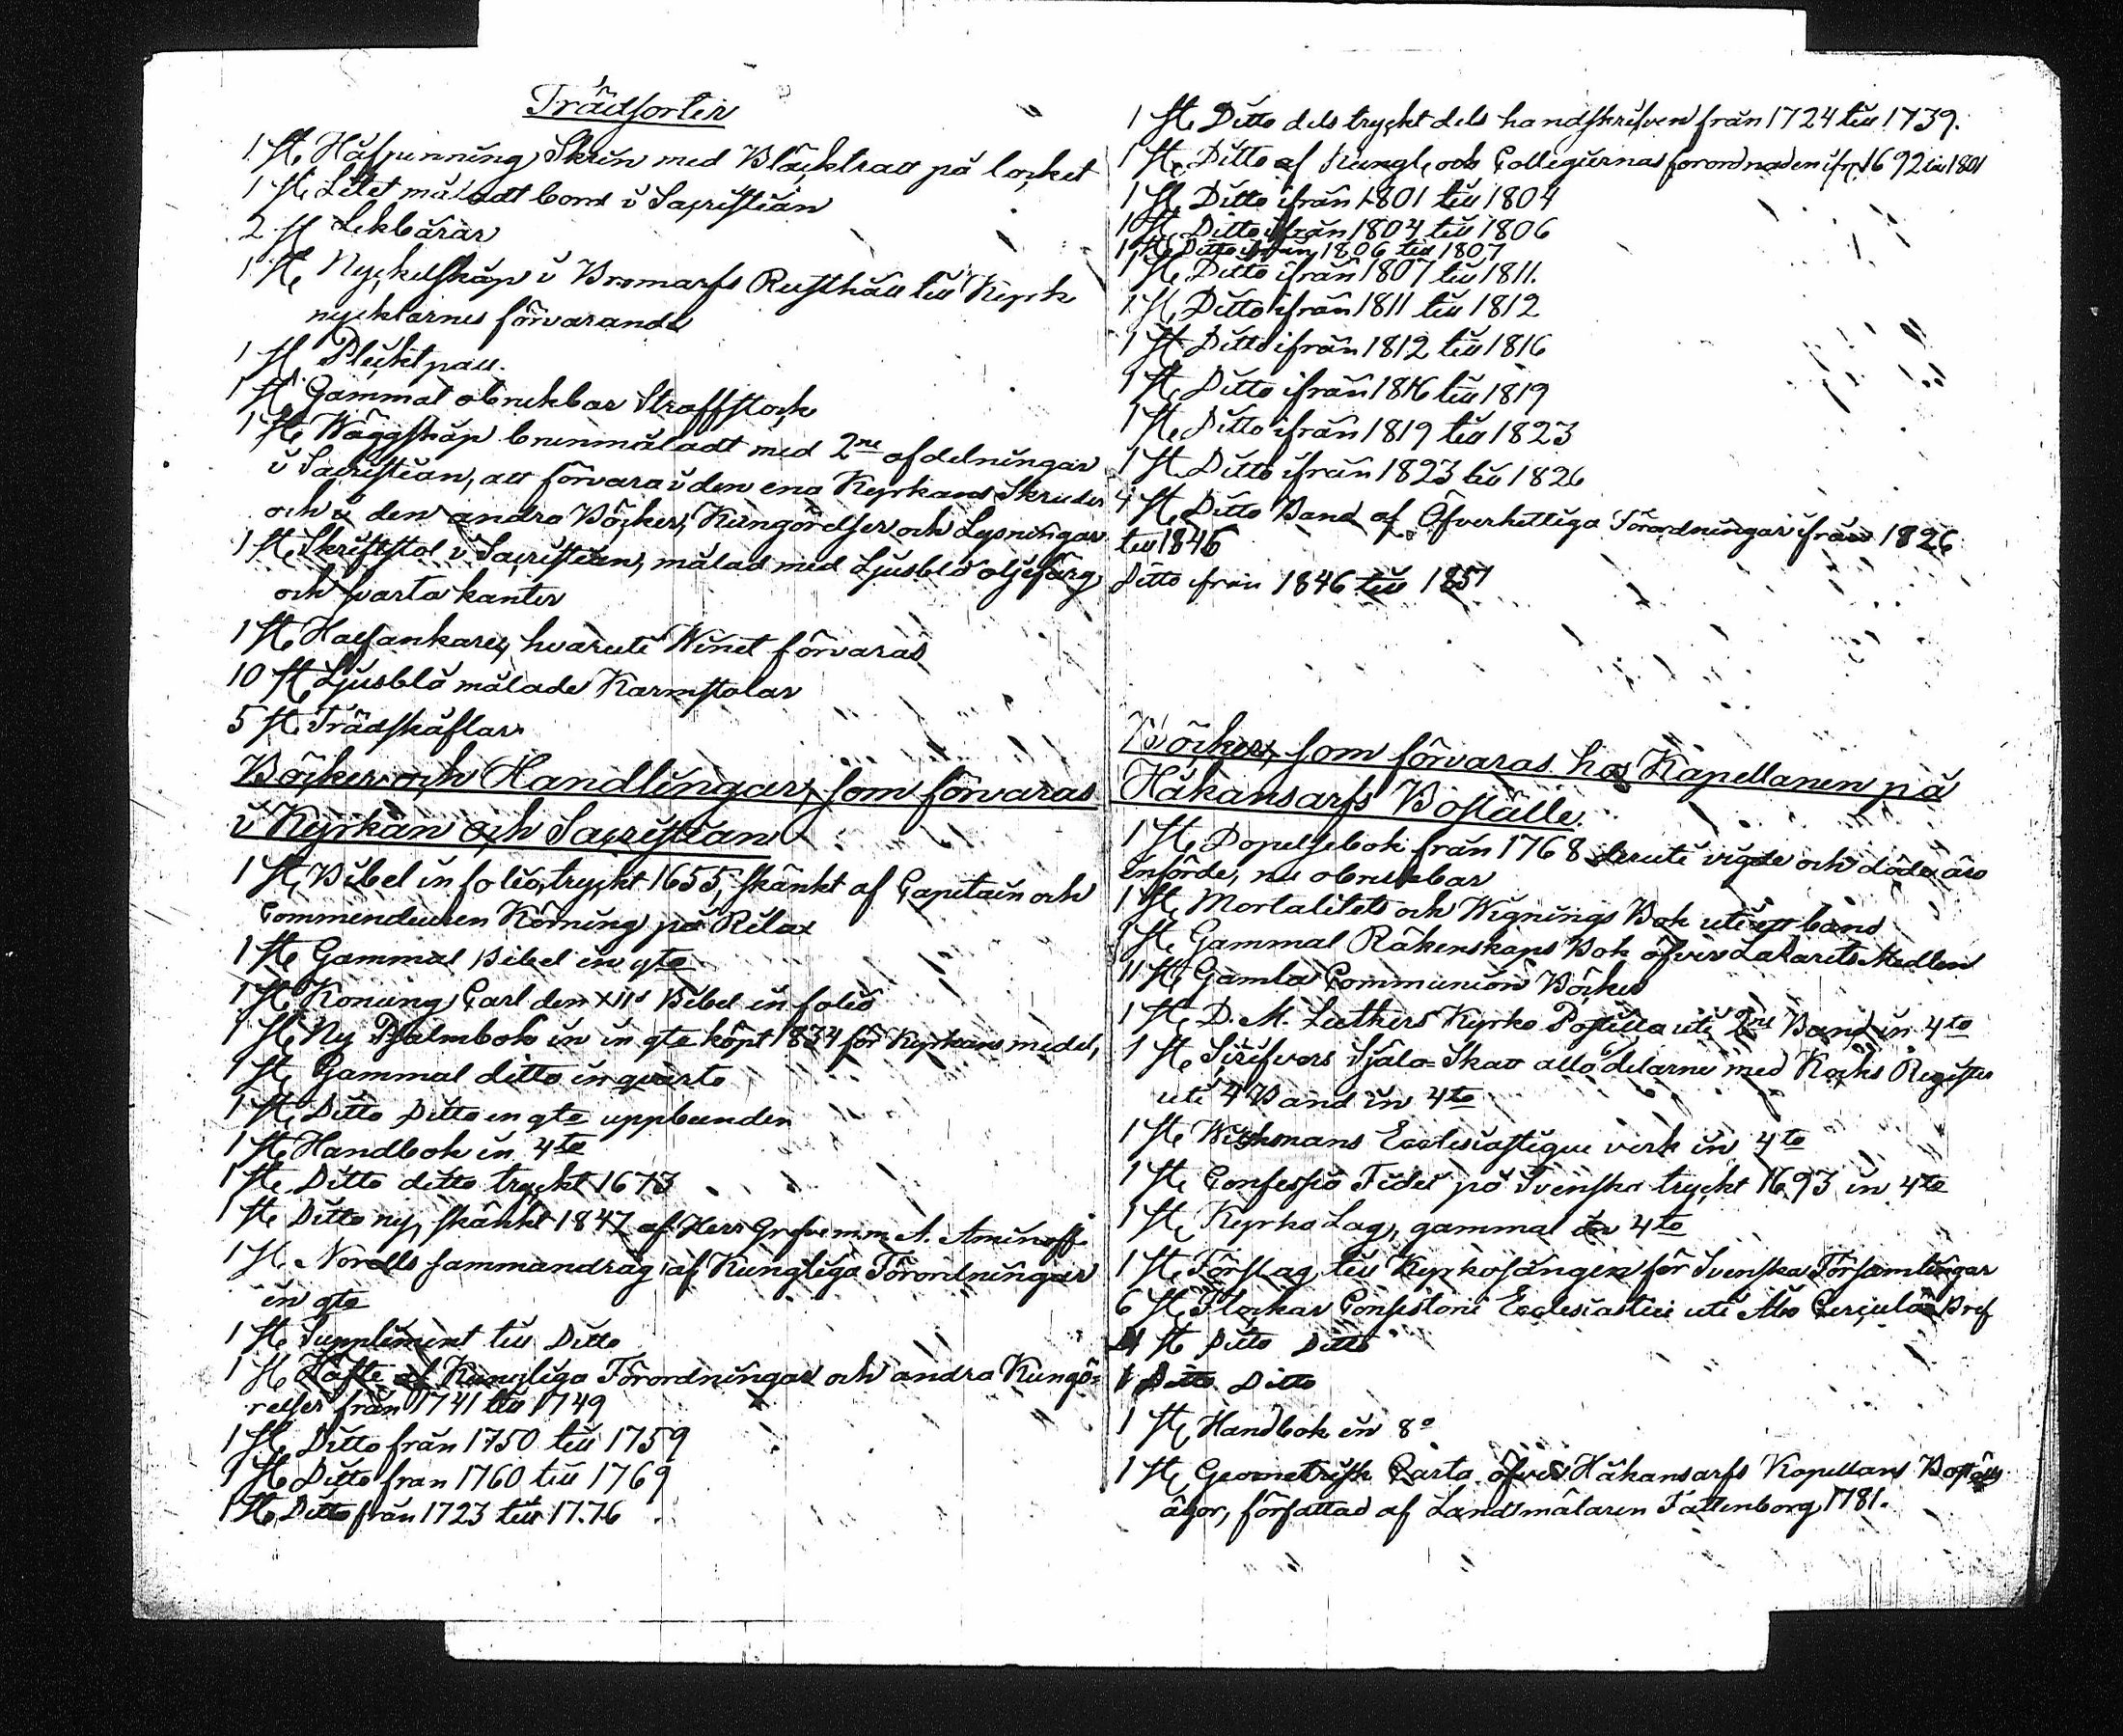 Trädsorter
1 St. Håfpenning Skrin med Bläcktratt på locket
1 St. Litet måladt bord i Sacristian
2 St. Likbårar
1 St. Nyckelskåp i Bromarfs Rusthåll till Kyrck
nycklarnes förvarande
1 St. Pliktpall.
1 St. Gammal obrukbar Straffstock
1 St. Wäggskåp brunmåladt med 2ne afdelningar
i Sacristian, att förvara i den ena Kyrkans Skruder
och i den andra Böcker, Kungörelser och Lysningar
1 St. Skriftstol i Sacristian, målad med Ljusblå oljefärg
och svarta kanter
1 St. Halfankare, hvaruti Winet förvaras
10 St. Ljusblå målade Karmstolar
5 St. Trädskåflar
Böcker och Handlingar, som förvaras
i Kyrkan och Sacristian
1 St. Bibel in folio, tryckt 1655, skänkt af Capitain och
Commendeuren Körning på Rilax
1 St. Gammal Bibel in qto
1 St. Konung Carl den XIIs Bibel in folio
1 St. Ny Psalmbok in in qto köpt 1834 för Kyrkans medel,
1 St. Gammal ditto in quarto
1 St. Ditto Ditto in qto uppbunden
1 St. Handbok in 4to
1 St. Ditto ditto tryckt 1673
1 St. Ditto ny, skänkt 1847 af Herr Grefve m.m. A. Aminoff
1 St. Norells sammandrag af Kungliga Förordningar
in qto
1 St. Suppliment till Ditto
1 St. Häfte af Kungliga Förordningar och andra Kungö-
relser från 1741 till 1749
1 St. Ditto från 1750 till 1759
1 St. Ditto fran 1760 till 1769
1 St. Ditto från 1723 till 1776
1 St. Ditto dels tryckt dels handskrifven från 1724 till 1739.
1 St. Ditto af Kungl. och Collegiernas forordnaden ifr. 1692 till 1801
1 St. Ditto ifrån 1801 till 1804
1 St. Ditto ifrån 1804 till 1806
1 St. Ditto ifrån 1806 till 1807
1 St. Ditto ifrån 1807 till 1811.
1 St. Ditto ifrån 1811 till 1812
1 St. Ditto ifrån 1812 till 1816
1 St. Ditto ifrån 1816 till 1819
1 St. Ditto ifrån 1819 till 1823
1 St. Ditto ifrån 1823 till 1826
4 St. Ditto Band af Öfverhetliga Förordningar ifrån 1826
till 1846
Ditto från 1846 till 1857
Böcker, som förvaras hos Kapellanen på
Håkansarfs Boställe.
1 St. Dopelsebok från 1768 deruti vigde och döde äro
införde, nu obrukbar
1 St. Mortalitets och Wignings Bok uti ett band
1 St. Gammal Räkenskaps Bok öfver Lazarets Medlen
11 St. Gamla Communion Böcker
1 St. D. M. Luthers Kyrko Postilla uti 2ne Band in 4to
1 St. Scrifvers Själa-Skatt alla delarne med Kochs Register
uti 4 Band in 4to
1 St. Wischmans Ecclesiastique verk in 4to
1 St. Confessio Fidei på Svenska tryckt 1693 in 4to
1 St. Kyrko Lag, gammal in 4to
1 St. Förslag till Kyrkosången för Svenska Församlingar
6 St. Flockar Consistorii Ecclesiastici uti Åbo Circulär Bref
St. Ditto Ditto
1 Ditto Ditto
1 St. Handbok in 8o
1 St. Geometrisk Carta öfver Håkansarfs Kapellans Boställs
ägor, författad af Landtmätaren Fattenborg 1781.